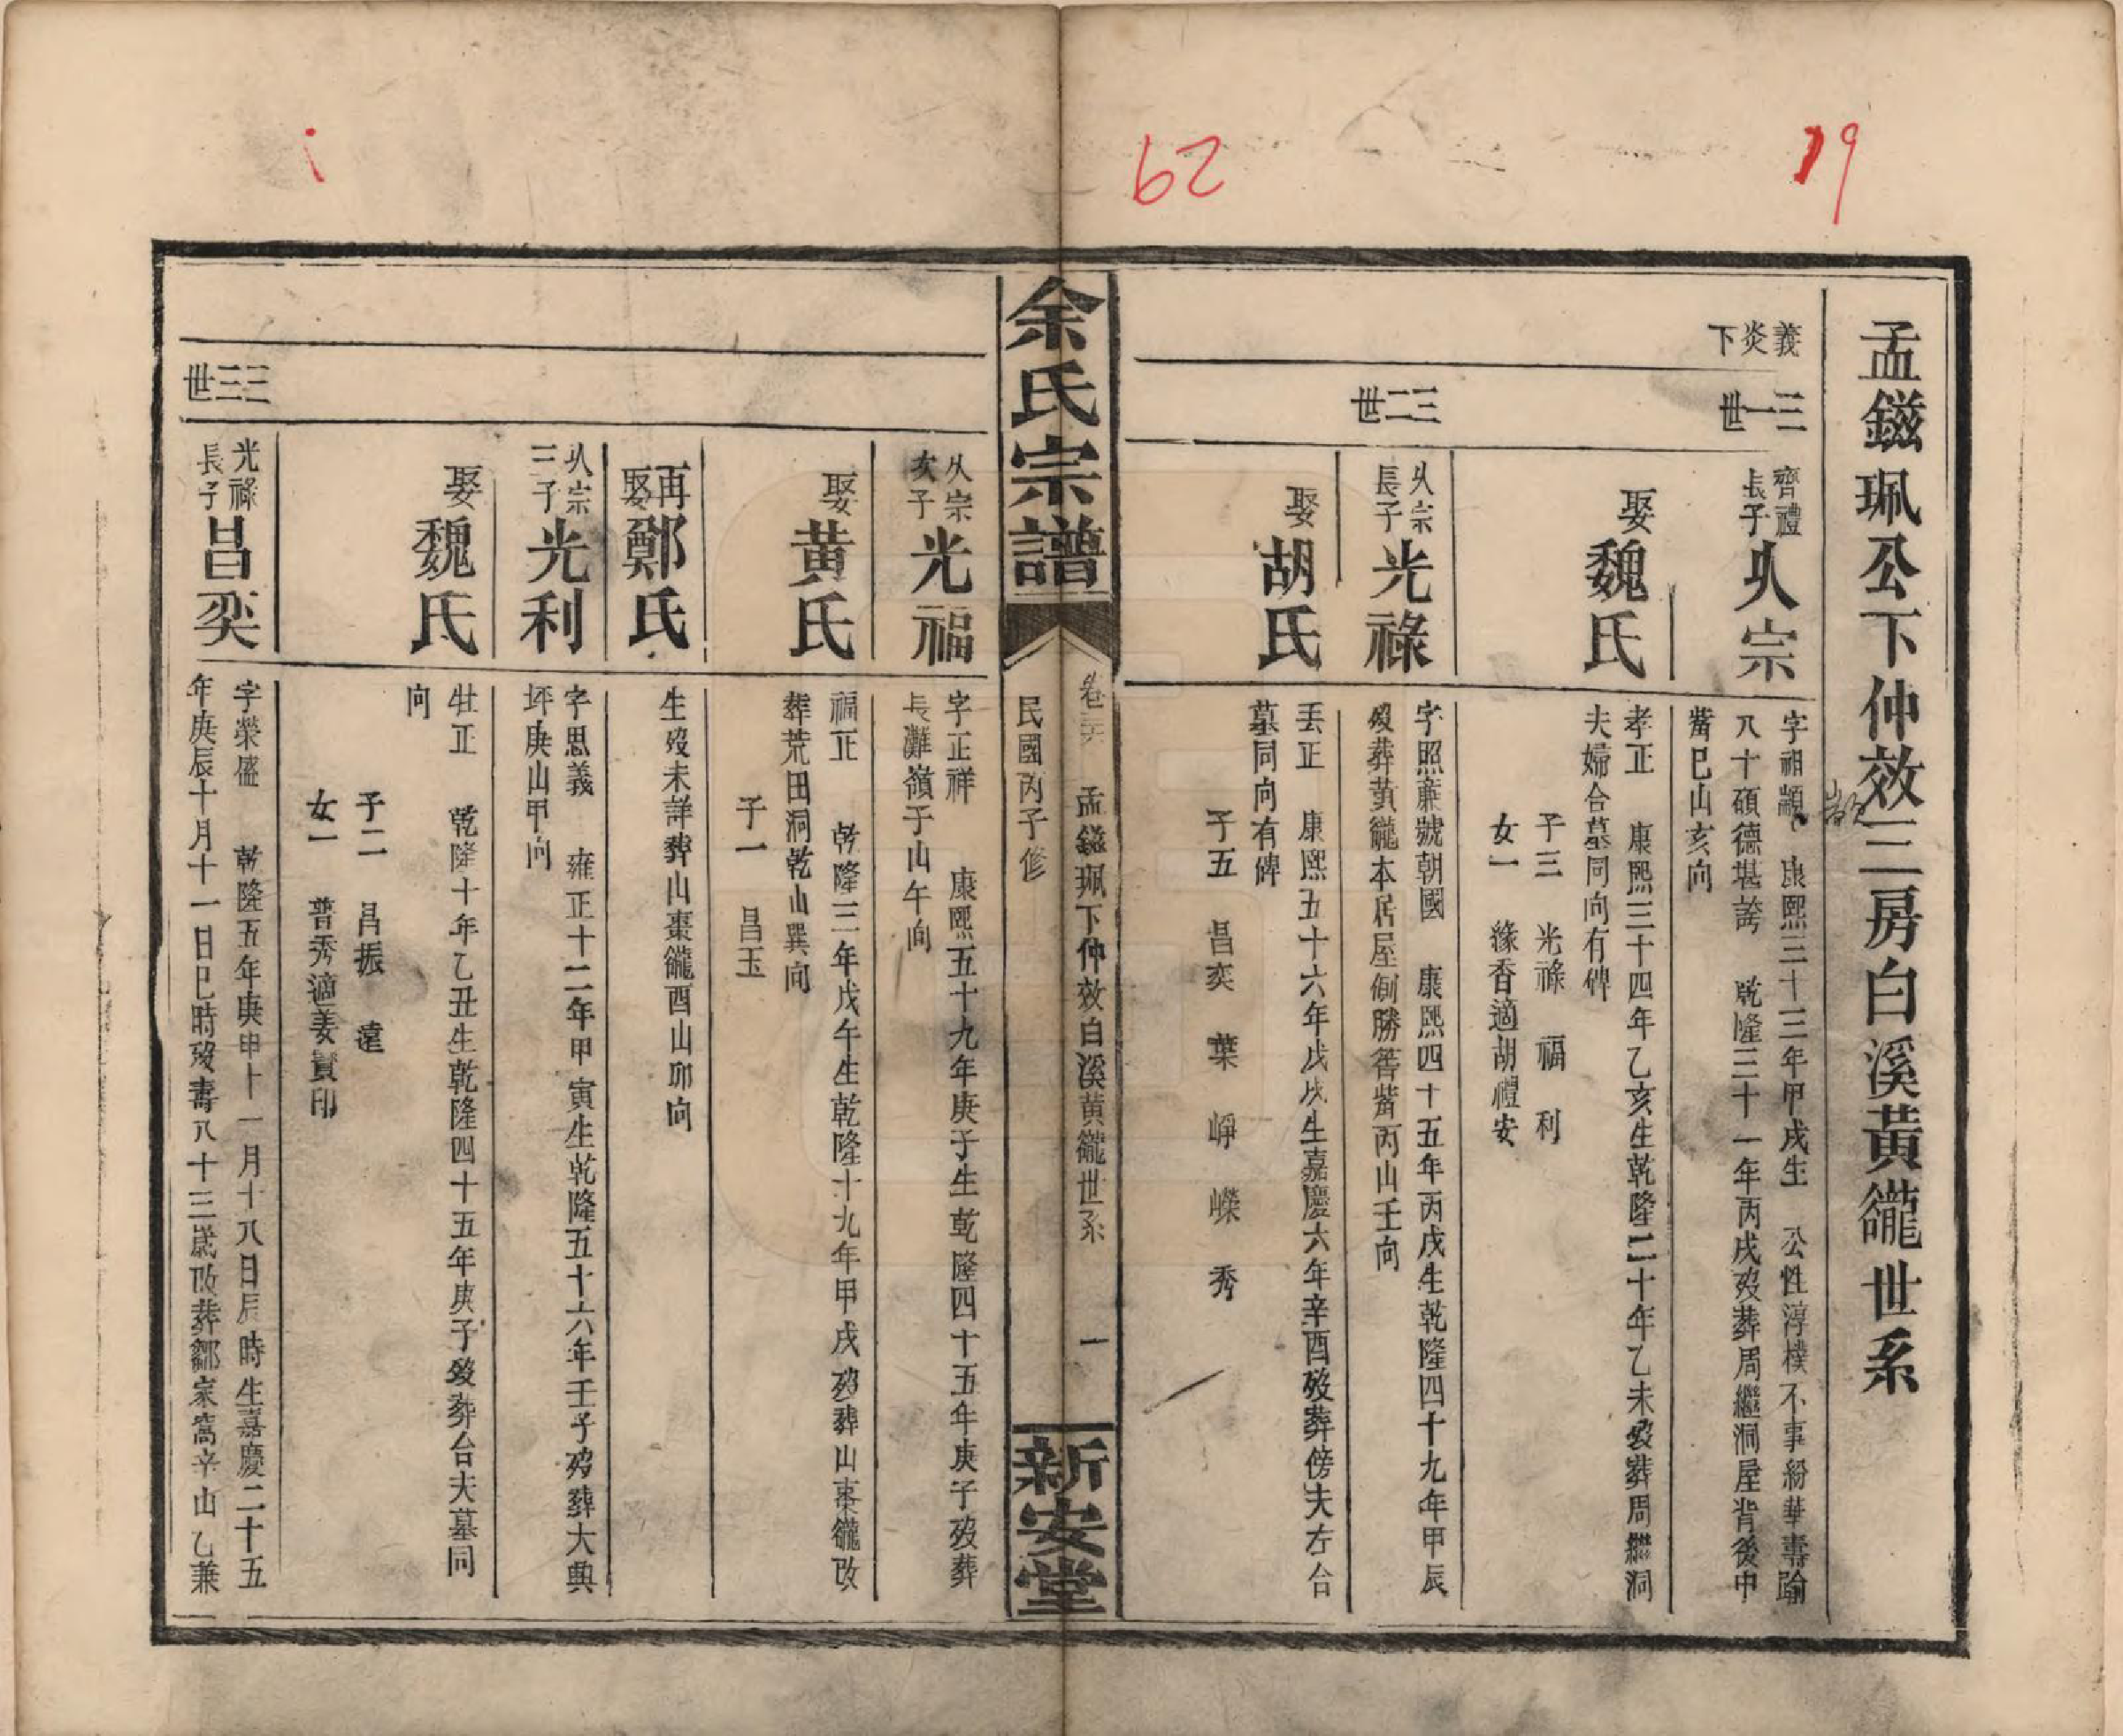 19
62
孟鎡珮公下仲效三房白溪黃巃世系
義
炎
下
三一世
齊禮
長子
㶨宗
字祖顓 康熙三十三年甲戌生 公性淳樸不事紛華壽踰
八十碩德堪誇 乾隆三十一年丙戌歿葬周繼洞屋背後中
嘴巳山亥向
娶魏氏
孝正 康熙三十四年乙亥生乾隆二十年乙未歿葬周繼洞
夫婦合墓同向有碑
子三 光祿 福 利
女一 緣香適胡禮安
三二世
宗
長子
光祿
字照薕號朝國 康熙四十五年丙戌生乾隆四十九年甲辰
歿葬黃巃本居屋側勝嘴丙山壬向
娶胡氏
丟正 康熙五十六年戊戌生嘉慶六年辛酉歿葬傍夫左合
墓同向有碑
子五 昌奕 葉 崢 嶸 秀
余氏宗譜
卷 孟鎡珮下仲效白溪黃巃世系 一
民國丙子修
新安堂
宗
次子
光福
字正祥 康熙五十九年庚子生乾隆四十五年庚子歿葬
長灘嶺子山午向
娶黃氏
福正 乾隆三年戊午生乾隆十九年甲戌歿葬山棗巃改
葬荒田洞乾山巽向
子一 昌玉
再娶鄭氏
生歿未詳葬山棗巃酉山卯向
宗
三子
光利
字思義 雍正十二年甲寅生乾隆五十六年壬子歿葬大典
坪庚山甲向
娶魏氏
牡正 乾隆十年乙丑生乾隆四十五年庚子歿葬合夫墓同
向
子二 昌振 遠
女一 普秀適姜賢印
三三世
光祿
長子
昌奕
字榮盛 乾隆五年庚申十一月十八日辰時生嘉慶二十五
年庚辰十月十一日巳時歿壽八十三歲改葬鄒家窩辛山乙兼